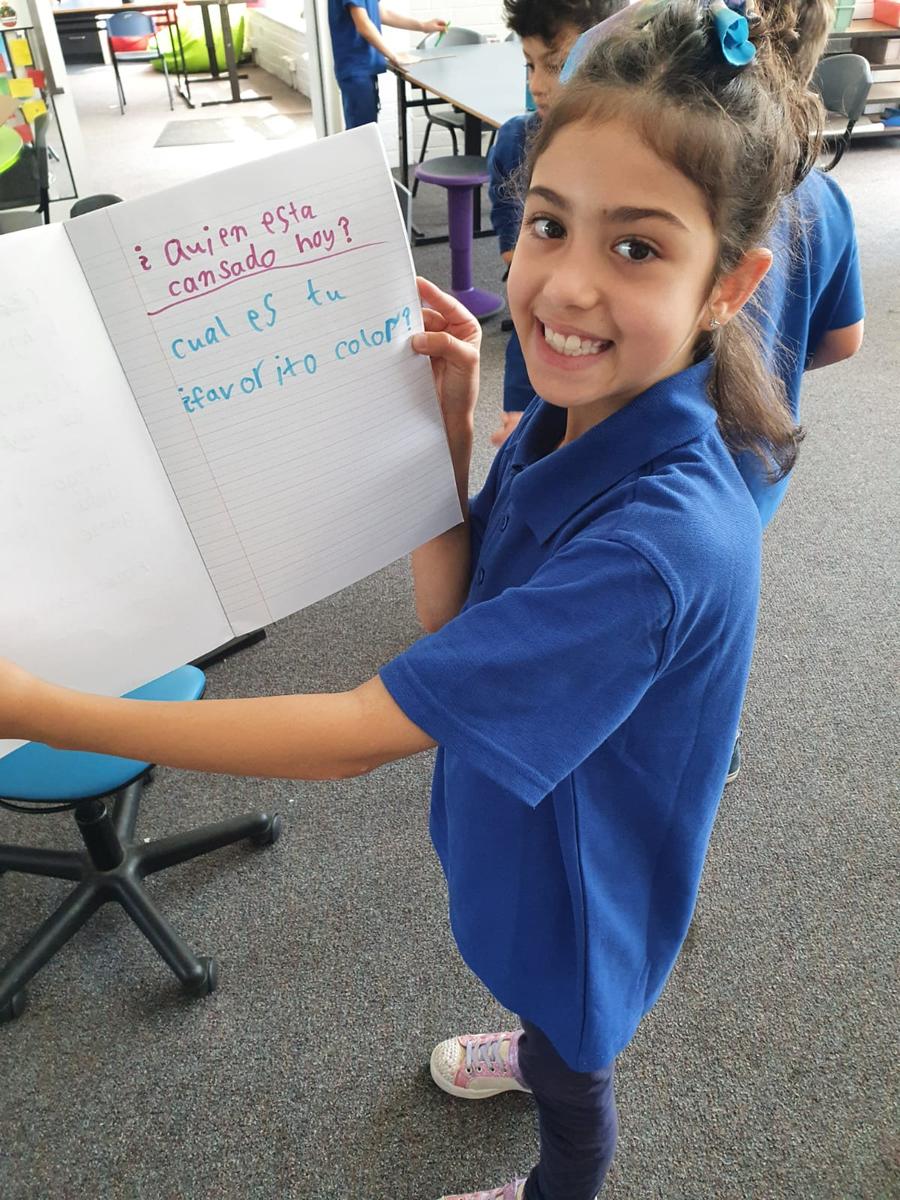 ¿ Quien esta
cansado hoy?
cual es tu
¿favorito color?